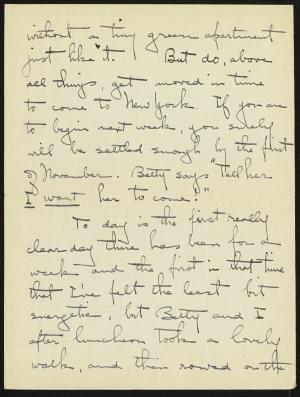 without a tiny green apartment
just like it. But do, above
all things, get moved in time
to come to New York. If you are
to begin next week, you surely
will be settled enough by the first
of November. Betty says "Tell her
I want her to come!"
To day is the first really
clear day there has been for a
week and the first in that time
that I've felt the least bit
energetic, but Betty and I
after luncheon took a lovely
walk, and then rowed on the